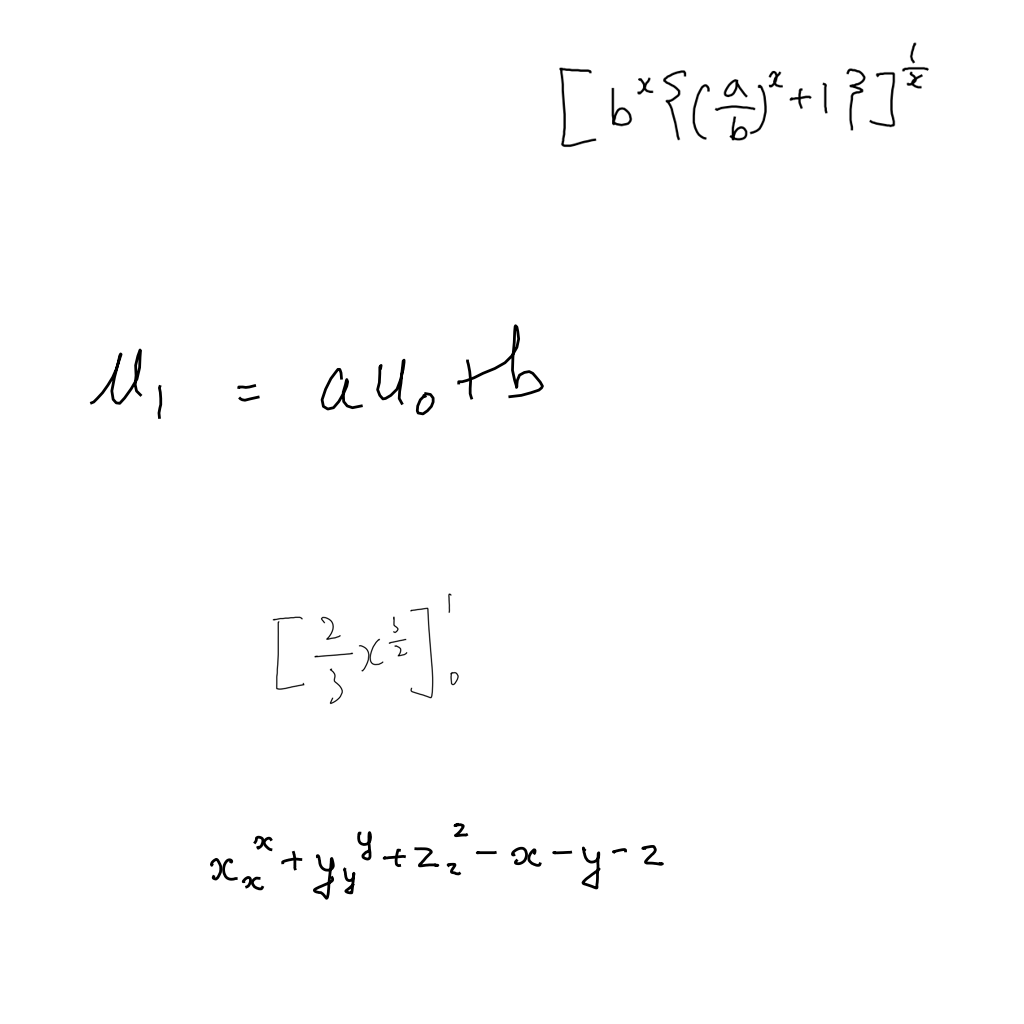 \left[ b^{x} \left\{ \left( \frac{a}{b} \right)^{x} + 1 \right\} \right]^{\frac{1}{x}}
u_{1} = a u_{0} + b
\left[ \frac{2}{3} x^{\frac{3}{2}} \right]_{0}^{1}
x_{x}^{x} + y_{y}^{y} + z_{z}^{z} - x - y - z